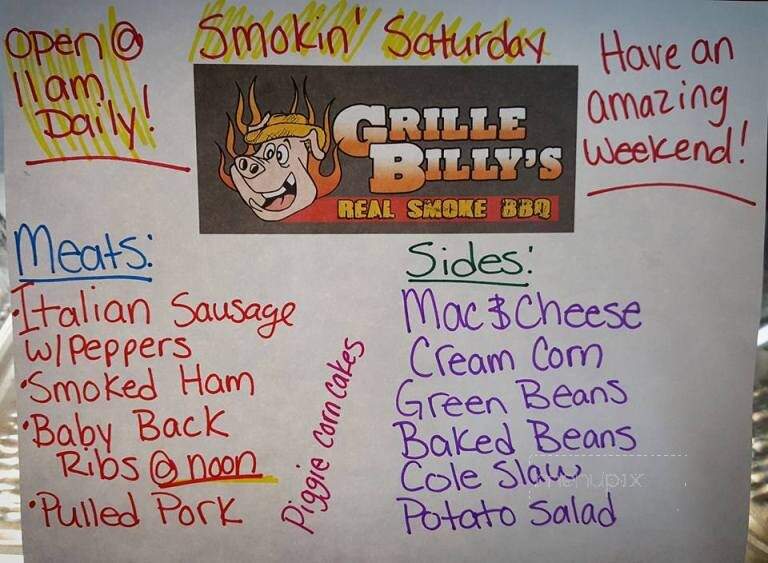 Open @
11am
Daily!
Smokin' Saturday
Have an
amazing
Weekend!
GRILLE
BILLY'S
REAL SMOKE BBQ
Meats:
•Italian Sausage
w/Peppers
•Smoked Ham
•Baby Back
Ribs @ noon
•Pulled Pork
Piggie Corn Cakes
Sides:
Mac $ Cheese
Cream Corn
Green Beans
Baked Beans
Cole Slaw
Potato Salad
menupix